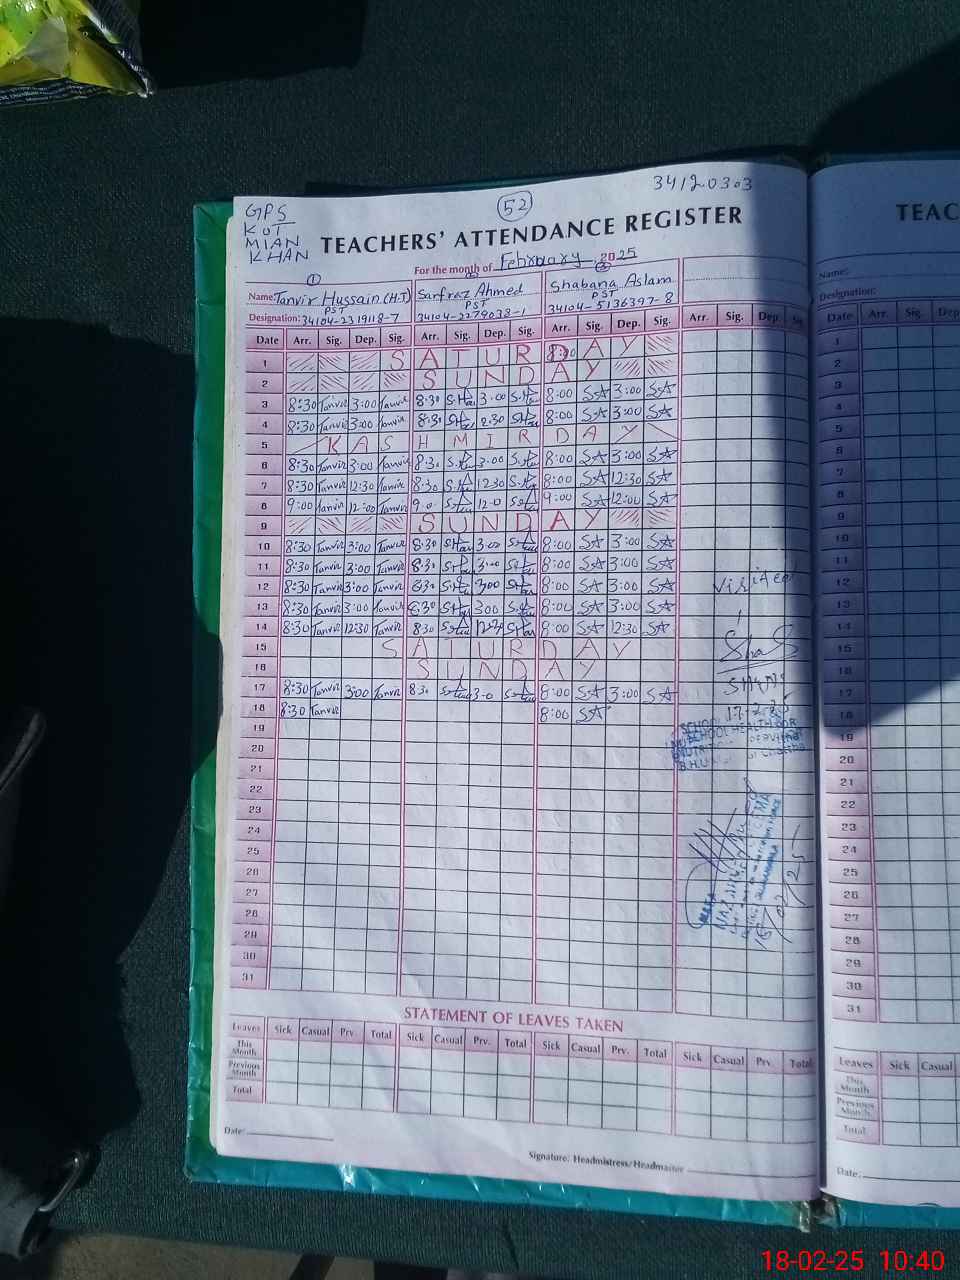 34120303
GPS
KOT
MIAN
KHAN
52
TEACHERS' ATTENDANCE REGISTER
For the month of February 2025
1 2 3
Name: Tanvir Hussain (H.T) Sarfraz Ahmed Shabana Aslam
PST PST PST
Designation: 34104-2319118-7 34104-2279038-1 34104-5136397-8
Date Arr. Sig. Dep. Sig. Arr. Sig. Dep. Sig. Arr. Sig. Dep. Sig. Arr. Sig. Dep. Sig.
1 SATURDAY 8:00
2 SUNDAY
3 8:30 Tanvir 3:00 Tanvir 8:30 3:00 8:00 SA 3:00 SA
4 8:30 Tanvir 3:00 Tanvir 8:30 2:30 8:00 SA 3:00 SA
5 KASHMIR DAY
6 8:30 Tanvir 3:00 Tanvir 8:30 3:00 8:00 SA 3:00 SA
7 8:30 Tanvir 12:30 Tanvir 8:30 12:30 8:00 SA 12:30 SA
8 9:00 Tanvir 12:00 Tanvir 9:0 12:0 9:00 SA 12:00 SA
9 SUNDAY
10 8:30 Tanvir 3:00 Tanvir 8:30 3:00 8:00 SA 3:00 SA
11 8:30 Tanvir 3:00 Tanvir 8:30 3:00 8:00 SA 3:00 SA
12 8:30 Tanvir 3:00 Tanvir 8:30 3:00 8:00 SA 3:00 SA
13 8:30 Tanvir 3:00 Tanvir 8:30 300 8:00 SA 3:00 SA
14 8:30 Tanvir 12:30 Tanvir 8:30 12:30 8:00 SA 12:30 SA
15 SATURDAY
16 SUNDAY
17 8:30 Tanvir 3:00 Tanvir 8:30 3:0 8:00 SA 3:00 SA
18 8:30 Tanvir 8:00 SA
19
20
21
22
23
24
25
26
27
28
29
30
31
Visited
17-2-25
SCHOOL HEALTH
B.H.U
STATEMENT OF LEAVES TAKEN
Leaves Sick Casual Prv. Total Sick Casual Prv. Total Sick Casual Prv. Total Sick Casual Prv. Total
This Month
Previous Month
Total
Date:
Signature: Headmistress/Headmaster
TEAC
Name:
Designation:
Date Arr. Sig. Dep
1
2
3
4
5
6
7
8
9
10
11
12
13
14
15
16
17
18
19
20
21
22
23
24
25
26
27
28
29
30
31
Leaves Sick Casual
This Month
Previous Month
Total
Date:
18-02-25 10:40